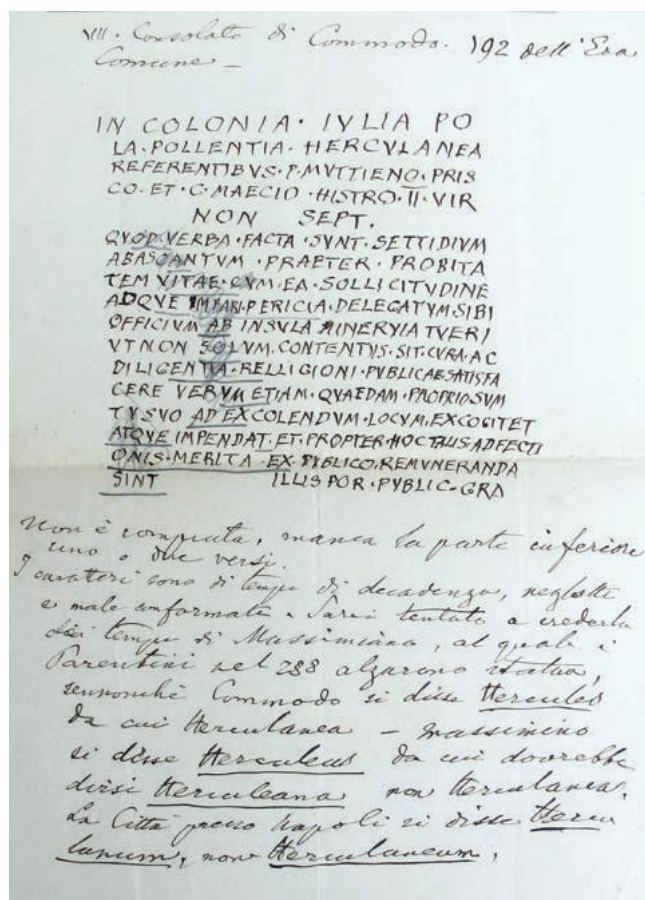 VII. Consolato di Commodo. 192 dell'Era
Comune —
IN COLONIA · IVLIA PO
LA · POLLENTIA · HERCVLANEA
REFERENTIBVS · P · MVTTIENO · PRIS
CO · ET · C · MAECIO · HISTRO · II · VIR
NON SEPT.
QVOD · VERBA · FACTA · SVNT · SETTIDIVM
ABASCANTVM · PRAETER · PROBITA
TEM VITAE · CVM · EA · SOLLICITVDINE
ADQVE IMPARI · PERICIA · DELEGATVM · SIBI
OFFICIVM AB INSVLA MINERVIA TVERI
VT NON SOLVM · CONTENTVS · SIT · CVRA · AC
DILIGENTIA · RELLIGIONI · PVBLICAE SATISFA
CERE VERVM ETIAM · QVAEDAM · PROPRIO SVM
TVSVO AD EXCOLENDVM · LOCVM · EXCOGITET
ATQVE IMPENDAT · ET · PROPTER · HOC TALIS ADFECTI
ONIS · MERITA · EX · PVBLICO · REMVNERANDA
SINT ILLIS POR · PVBLIC - GRA
Non è compiuta, manca la parte inferiore
uno o due versi.
I caratteri sono di tempi di decadenza, negletti
e male conformati. Sarei tentato a crederla
dei tempi di Massimiano, al quale i
Parentini nel 288 alzarono statua,
sennonchè Commodo si disse Hercules
da cui Herculanea — Massimino
si disse Herculeus da cui dovrebbe
dirsi Herculeana non Herculanea.
La Città presso Napoli si disse Hercu
lanum, non Herculaneum.